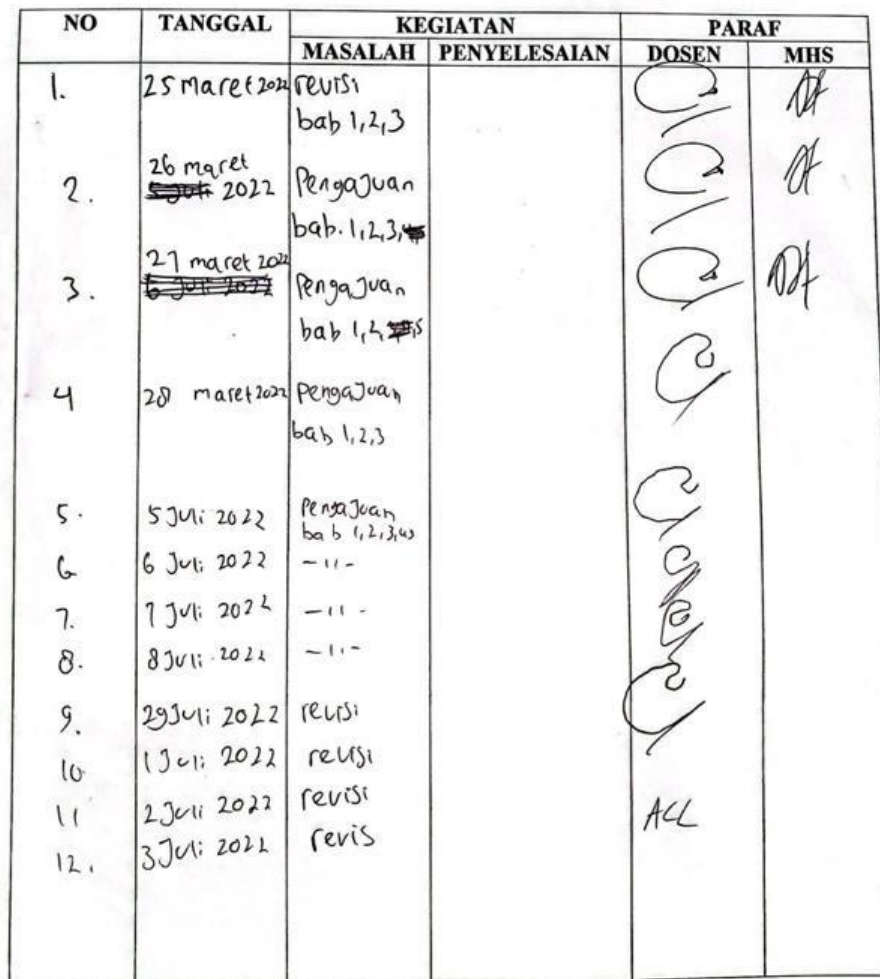 NO TANGGAL KEGIATAN PARAF
MASALAH PENYELESAIAN DOSEN MHS
1. 25 maret 2022 revisi
bab 1,2,3
26 maret
2. 2022 Pengajuan
bab. 1,2,3,
27 maret 2022
3. Pengajuan
bab 1,2,
4 28 maret 2022 Pengajuan
bab 1,2,3
5. 5 Juli 2022 Pengajuan
bab 1,2,3,4,5
6 6 Juli 2022 -11-
7. 7 Juli 2022 -11-
8. 8 Juli 2022 -11-
9. 29 Juli 2022 revisi
10 1 Juli 2022 revisi
11 2 Juli 2022 revisi ACC
12. 3 Juli 2022 revis